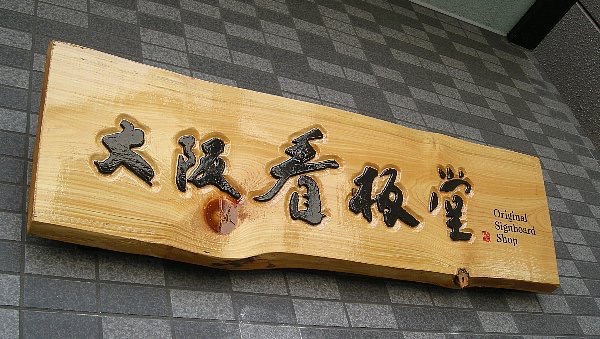 大阪看板堂
Original
Signboard
Shop